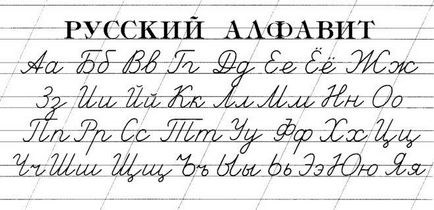 РУССКИЙ АЛФАВИТ
Аа Бб Вв Гг Дд Ее Ёё Жж
Зз Ии Йй Кк Лл Мм Нн Оо
Пп Рр Сс Тт Уу Фф Хх Цц
Чч Шш Щщ Ъъ Ыы Ьь Ээ Юю Яя